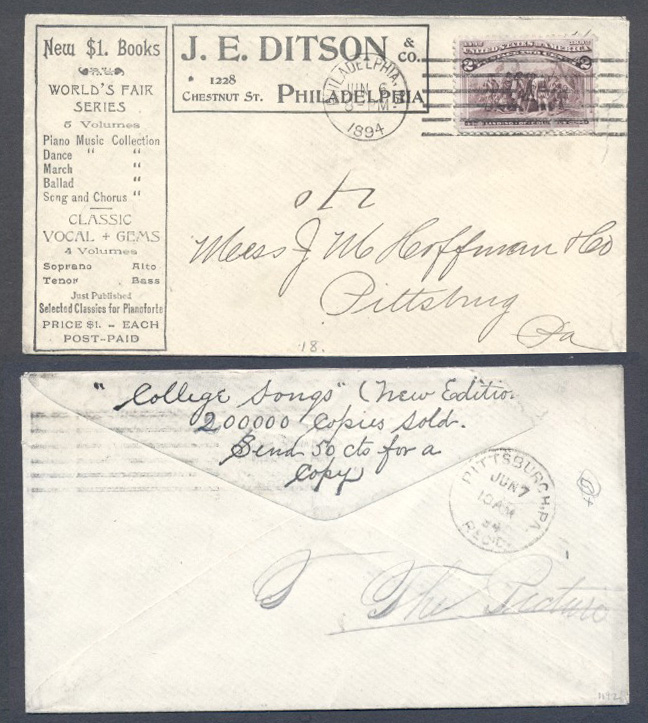 New $1. Books
WORLD'S FAIR
SERIES
5 Volumes
Piano Music Collection
Dance " "
March "
Ballad "
Song and Chorus "
CLASSIC
VOCAL + GEMS
4 Volumes
Soprano Alto
Tenor Bass
Just Published
Selected Classics for Pianoforte
PRICE $1. - EACH
POST-PAID
J. E. DITSON & CO.
1228
CHESTNUT ST. PHILADELPHIA
PHILADELPHIA
JUN 6
1894
UNITED STATES OF AMERICA
2 2
Mess J M Hoffman & Co
Pittsburg
Pa
18.
"College Songs" (New Edition
200000 Copies Sold.
Send 50 cts for a
Copy
PITTSBURGH, PA.
JUN 7
10 AM
94
REC'D.
The